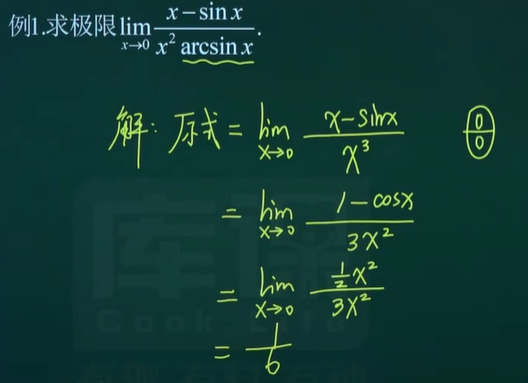 例1.求极限 lim x→0 (x − sin x)/(x² arcsin x).
解: 原式 = lim x→0 (x − sinx)/x³ (0/0)
= lim x→0 (1 − cosx)/(3x²)
= lim x→0 (½x²)/(3x²)
= 1/6
库课
Cook Life